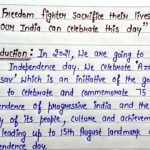 Freedom fighter Sacrifice their lives
Our India can celebrate this day"
duction:- In 2021, We are going to
Independence day. We celebrate 'Az
sav' which is an initiative of the go
to celebrate and commemorate 75
endence of progressive india and the
y of its people, culture and achievem
leading up to 15th August landmark
pendence day.